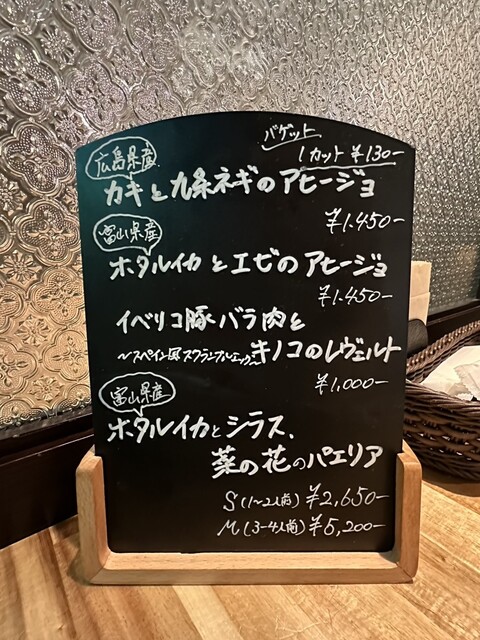 バゲット
1カット ¥130-
広島県産
カキと九条ネギのアヒージョ
¥1.450-
富山県産
ホタルイカとエビのアヒージョ
¥1.450-
イベリコ豚バラ肉と
〜スペイン風スクランブルエッグ〜キノコのレヴェルト
¥1,000-
富山県産
ホタルイカとシラス、
菜の花のパエリア
S(1〜2人前)¥2,650-
M(3-4人前)¥5,200-